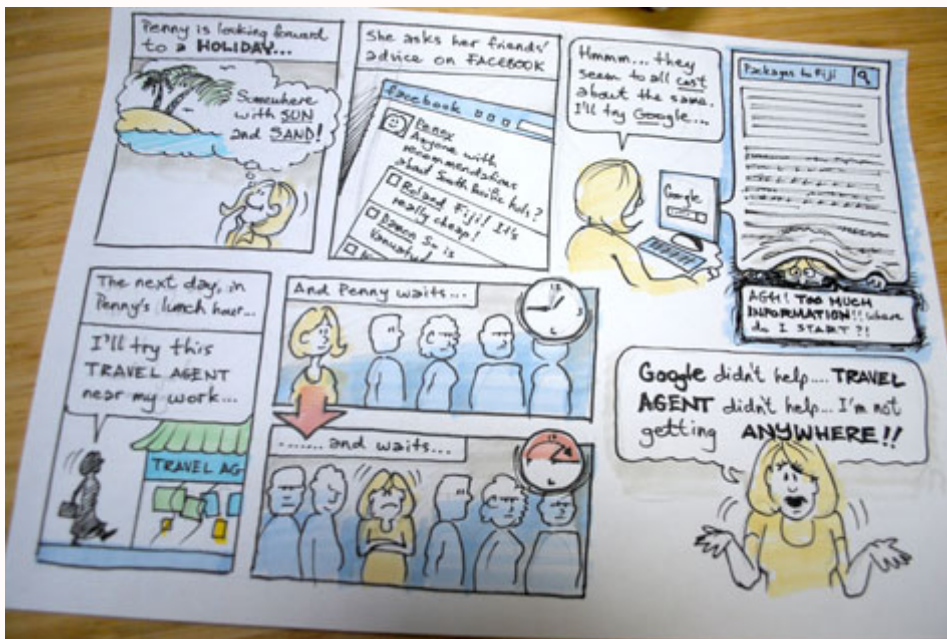 Penny is looking forward
to a HOLIDAY...
Somewhere
with SUN
and SAND!
She asks her friends'
advice on FACEBOOK
facebook
Penny
Anyone with
recommendations
about South Pacific hols?
Roland Fiji! It's
really cheap!
Damon So is
Vanuatu!
Hmmm... they
seem to all cost
about the same.
I'll try Google...
Google
Packages to Fiji
AGH! TOO MUCH
INFORMATION!! Where
do I START?!
The next day, in
Penny's lunch hour...
I'll try this
TRAVEL AGENT
near my work...
TRAVEL AG
And Penny waits...
12
3
....... and waits...
12
Google didn't help.... TRAVEL
AGENT didn't help... I'm not
getting ANYWHERE!!